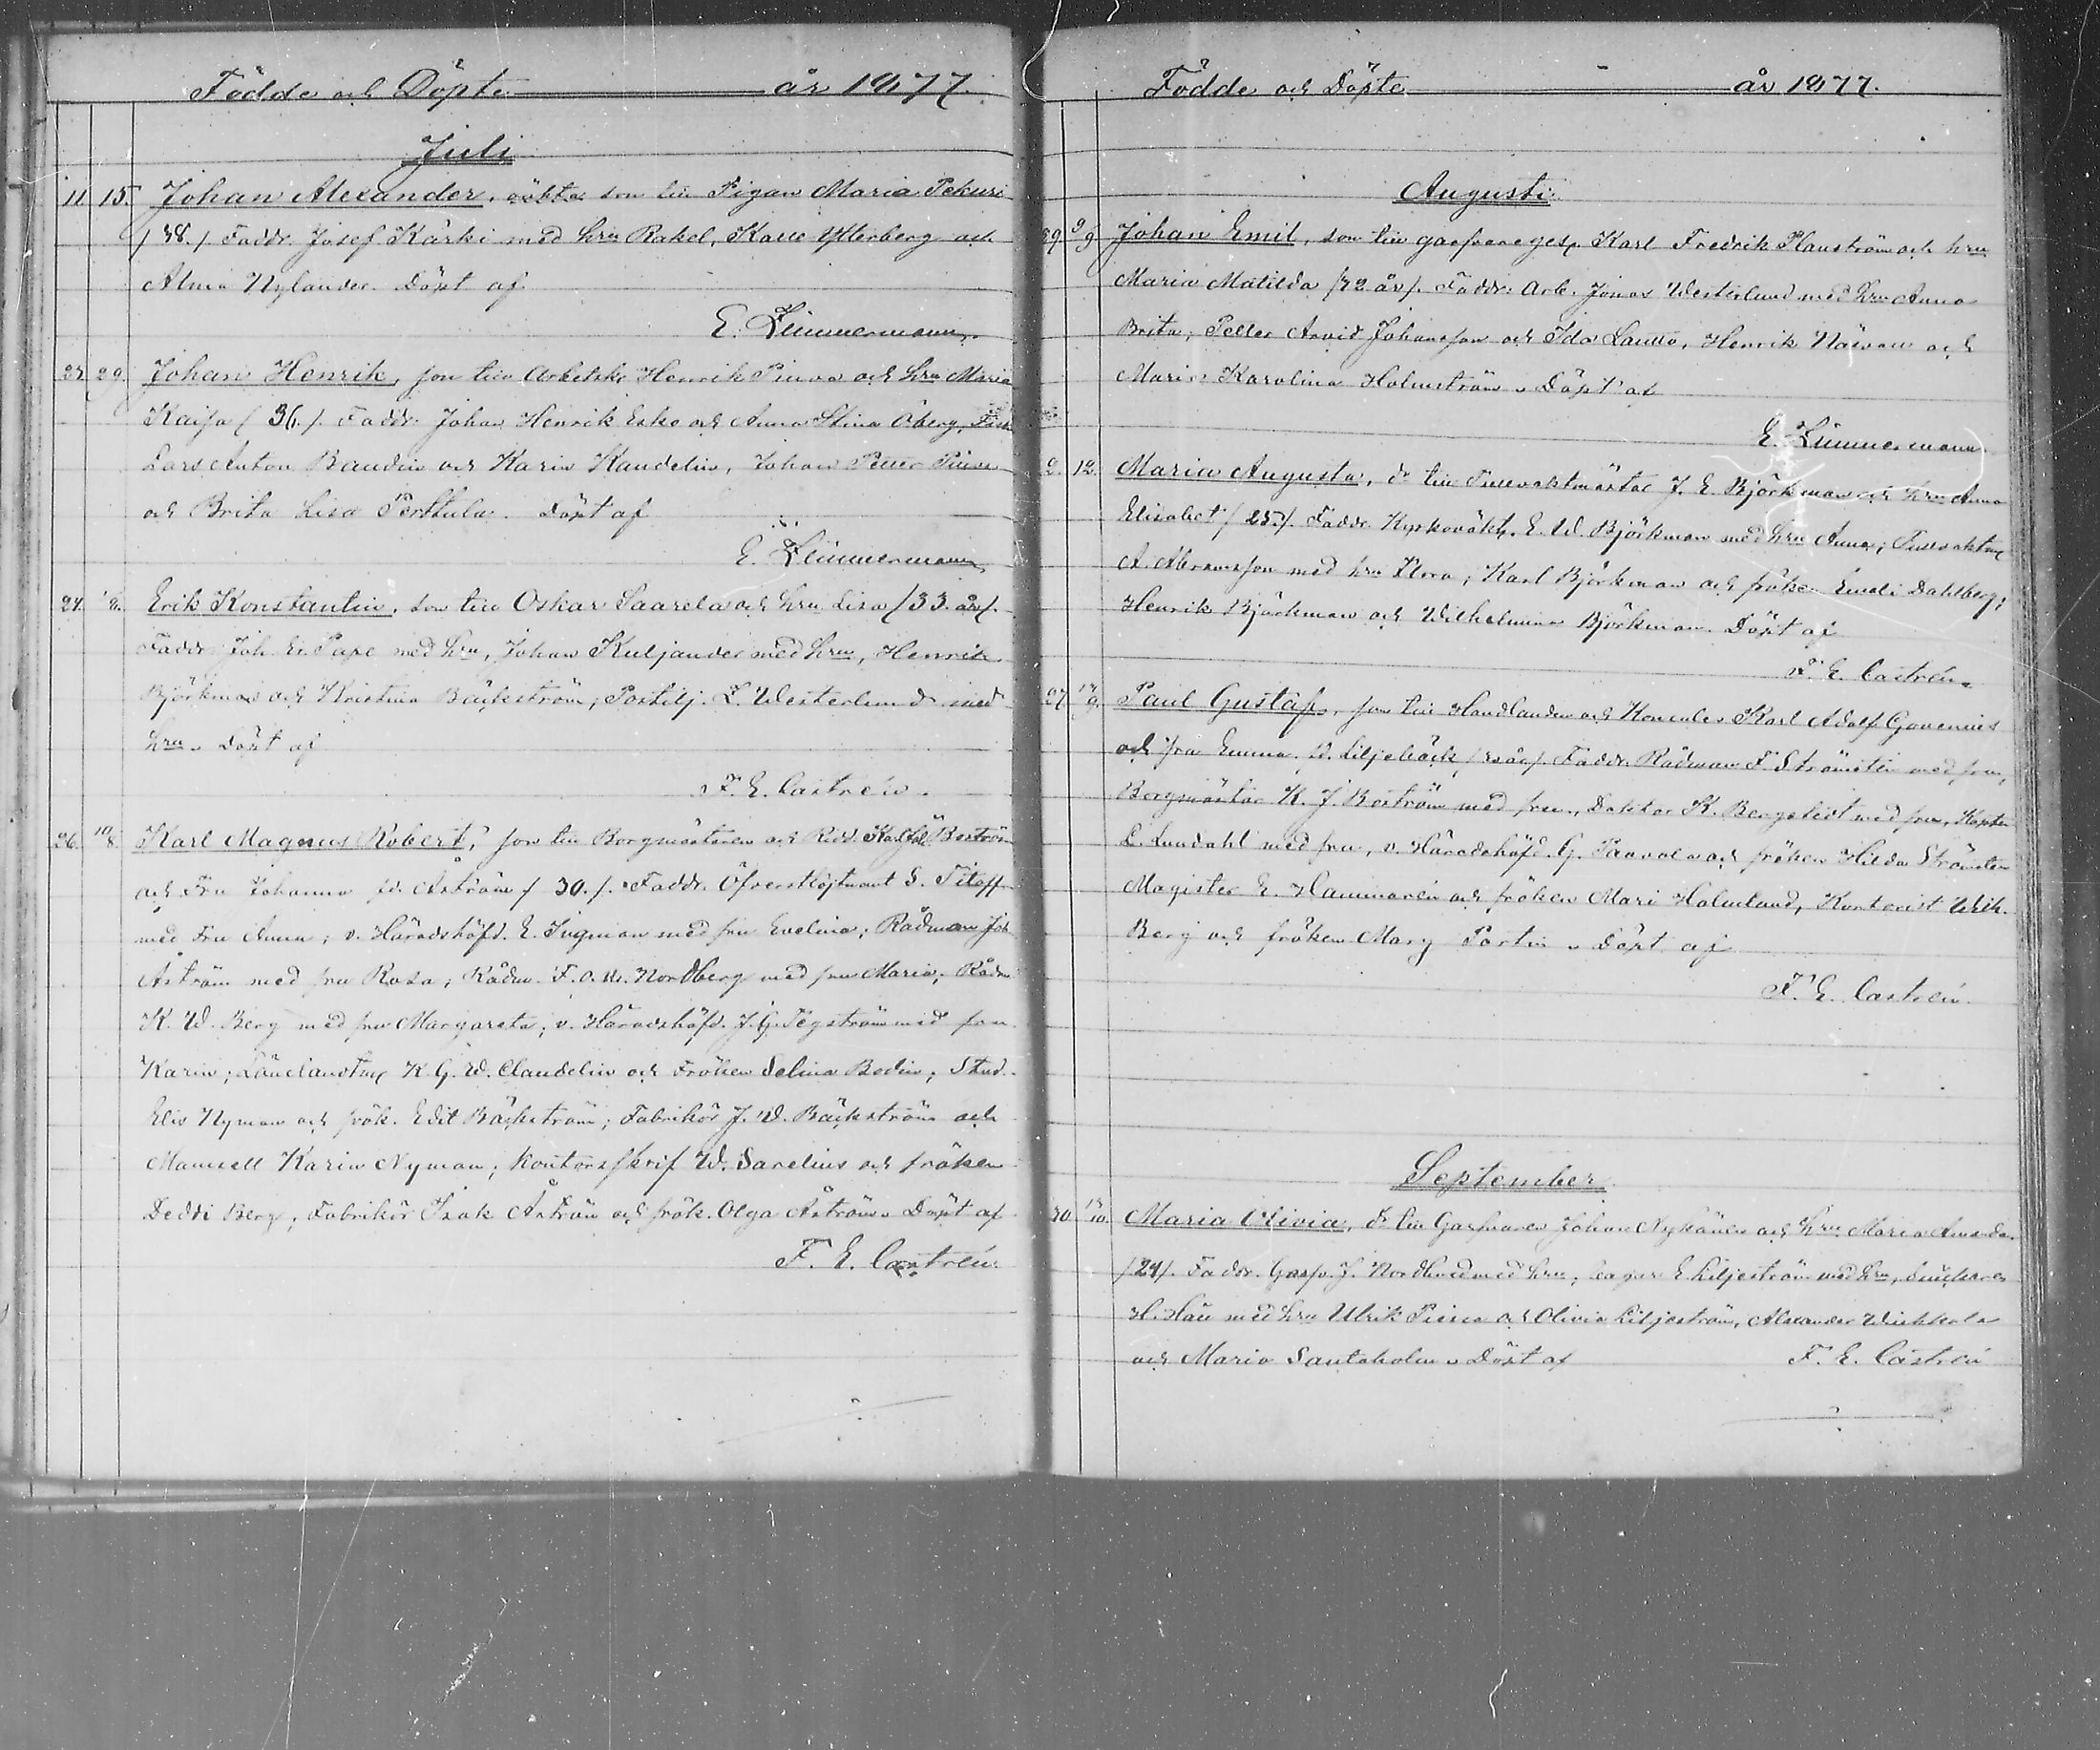 Födde och Döpte år 1877.
Juli
11 15. Johan Alexander, oäkta son till Pigan Maria Pekuri
/38./ Faddr. Josef Kärki med hru Rakel, Kalle Ytterberg och
Alma Nylander. Döpt af
E. Zimmermann.
23 29. Johan Henrik, son till Arbetsk. Henrik Pinna och hru Maria
Kaisa /36./ Faddr. Johan Henrik Esko och Anna Stina Öberg,
Lars Anton Baudin och Karin Kandelin, Johan Petter
och Brita Lisa Perttula. Döpt af
E. Zimmermann
24. 1/8. Erik Konstantin, son till Oskar Saarela och hru Lisa /33. år/.
Faddr. Joh. Er. Pape med hru, Johan Kuljander med hru, Henrik
Björkman och Kristina Bäckström; Postilj. L. Westerlund med
hru. Döpt af
F. E. Castrén.
26. 10/8. Karl Magnus Robert, son till Borgmästaren och Ridd. Karl Boström
och Fru Johanna fd. Åström /30./. Faddr. Öfverstlöjtnant S. Titoff
med Fru Anna; v. Häradshöfd. E. Ingman med fru Evelina; Rådman Joh
Åström med fru Rosa; Rådm. F. O. W. Nordberg med fru Maria; Rådm
K. W. Berg med fru Margareta; v. Häradshöfd. J. G. Pegström med fru
Karin; K. G. W. Claudelin och Fröken Selina Bodin; Stud.
Elis Nyman och frök. Edit Bäckström; Fabrikör J. W. Bäckström och
Mamsell Karin Nyman; Kontorsskrif W. Sarelius och fröken
Deddi Berg; Fabrikör Isak Åström och frök. Olga Åström. Döpt af
F. E. Castrén
Födde och Döpte år 1877.
Augusti
9/9 Johan Emil, son till garfvareges. Karl Fredrik Planström och hru
Maria Matilda /32 år/. Faddr. Arb. Jonas Westerlund med hru Anna
Brita; Petter Arvid Johansson och Ida Lautto, Henrik och
Maria Karolina Holmström. Döpt af
E. Zimmermann
12. Maria Augusta, dr till Tullvaktmästar J. E. Björkman och hru Anna
Elisabet /25/. Faddr. Kyrkovakt. E. W. Björkman med hru Anna; Tullvaktm
A. Abramsson med hru Flora; Karl Björkman och fröken Emeli Dahlberg;
Henrik Björkman och Wilhelmina Björkman. Döpt af
F. E. Castrén.
27 Paul Gustaf, son till Handlanden och Konsuln Karl Adolf Govenius
och fru Emma fd. Liljebäck. Faddr. Rådman F. Strömsten med fru,
Borgmästar K. J. Boström med fru, Doktor K. Bergstedt med fru, Kapten
L. Lundahl med fru, v. Häradshöfd. G. Paavola och fröken Hilda Strömsten
Magister E. Hammarén och fröken Mari Holmlund, Kontorist Wilh.
Berg och fröken Mary Portin. Döpt af
F. E. Castrén.
September
30 Maria Olivia, dr till Garfvaren Johan Nykänen och hru Maria Amanda
/24/. Faddr. Garfv. J. Nordlund med hru, E. Liljeström med hru,
H. med hru Ulrik och Olivia Liljeström, Alexander
och Maria Santaholm. Döpt af F. E. Castrén